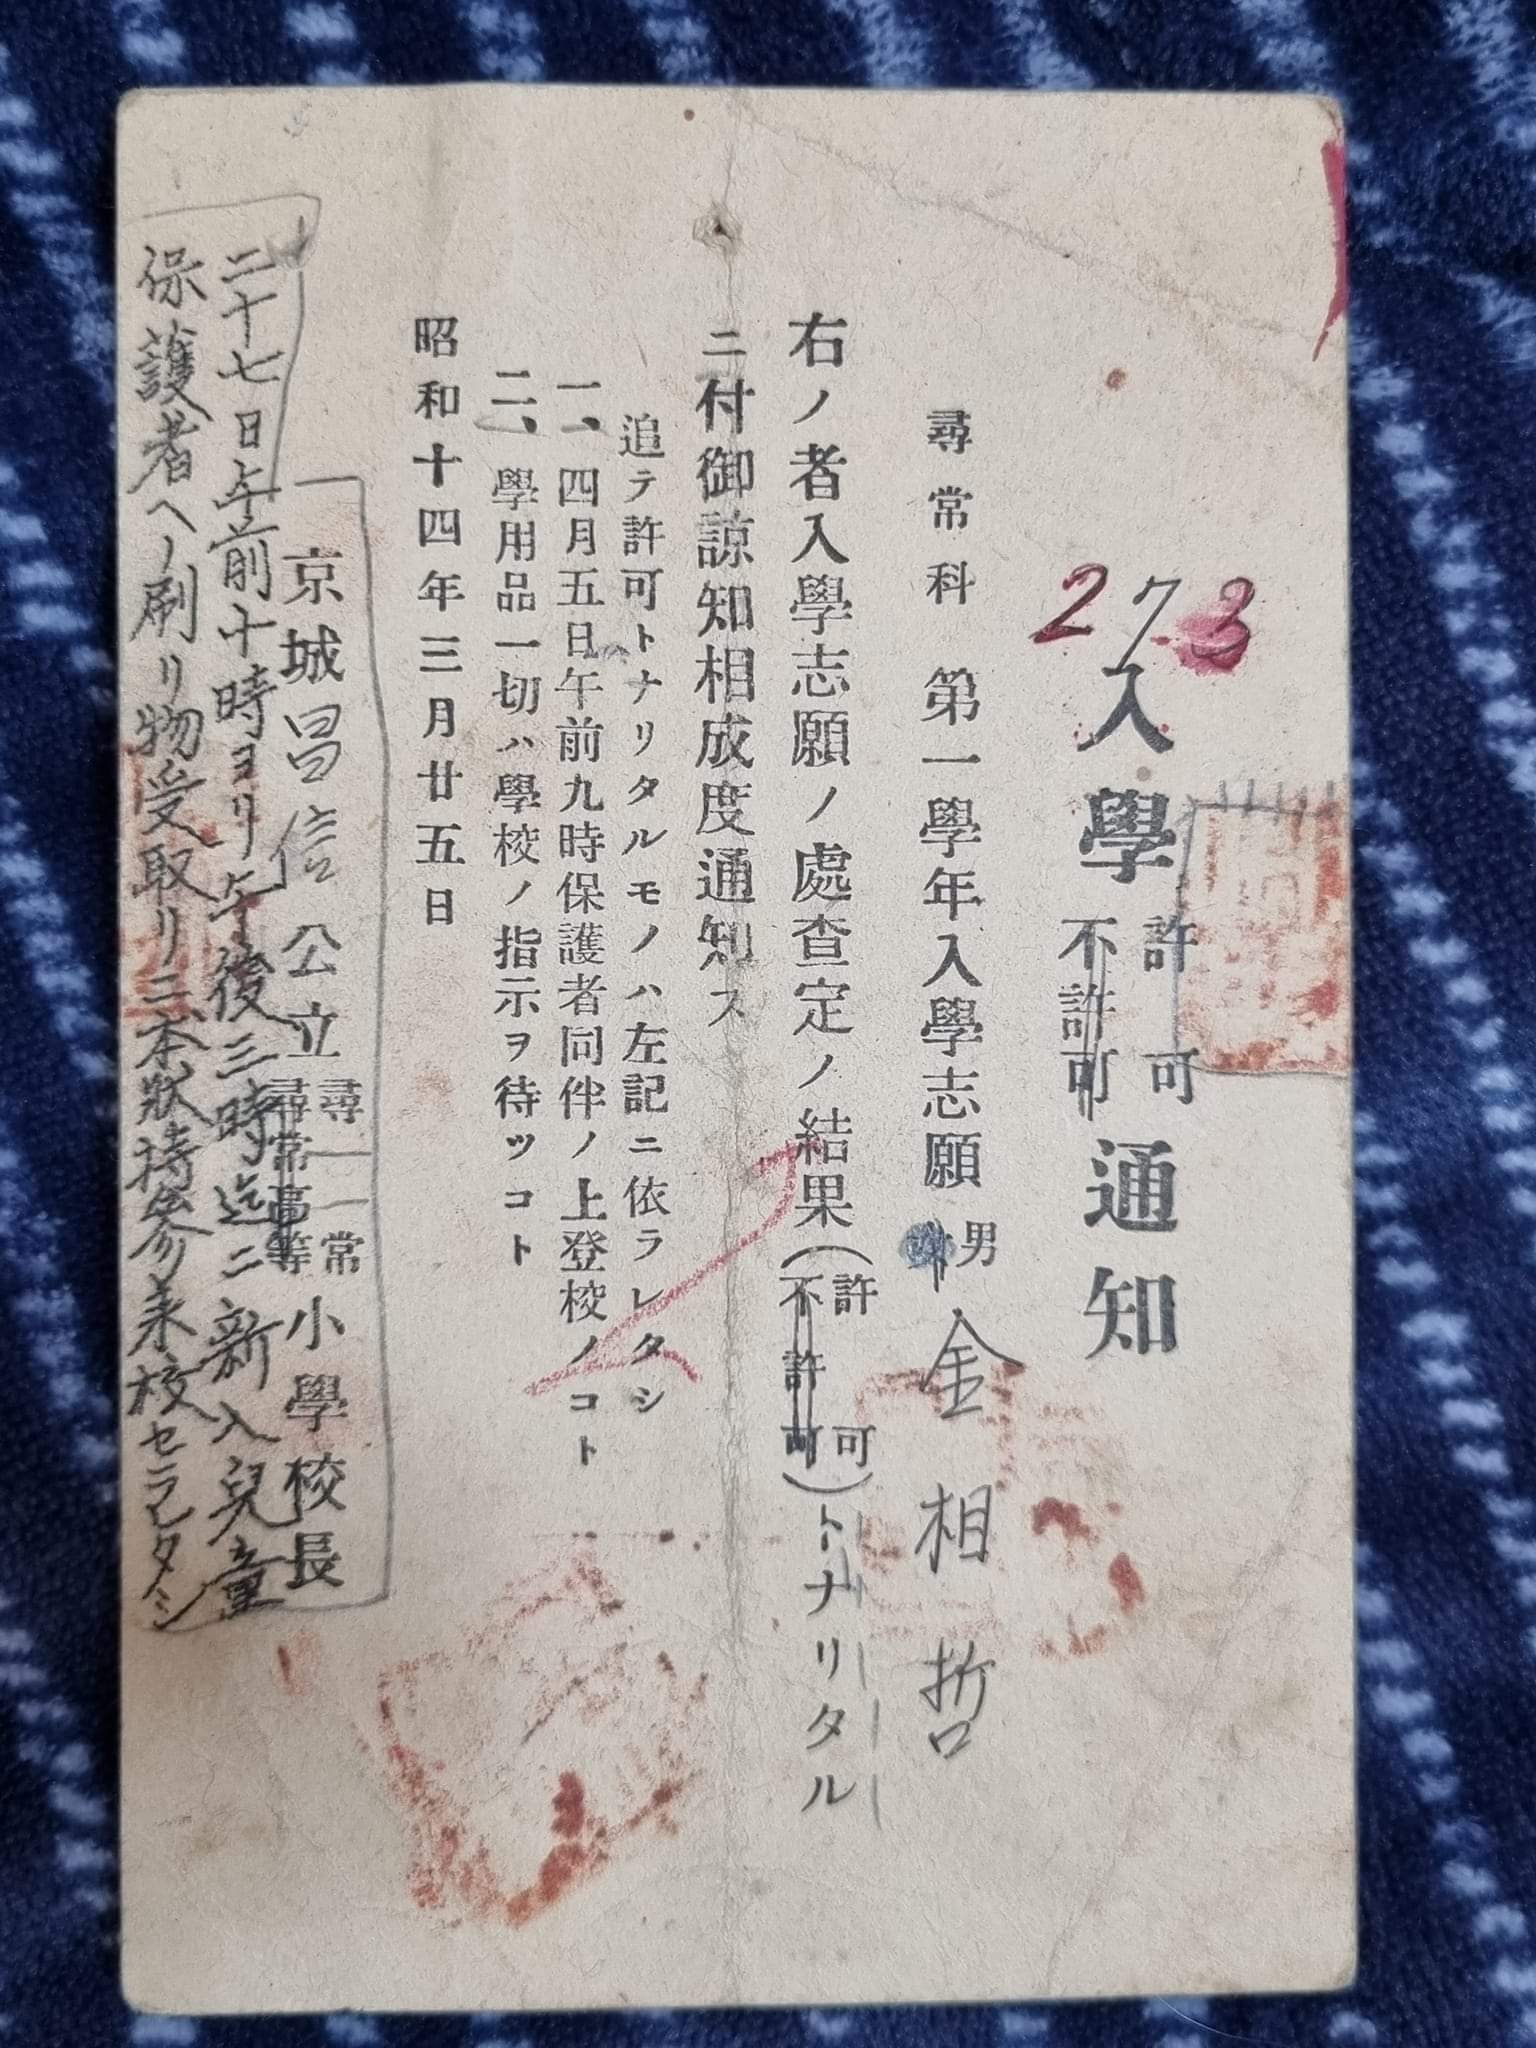 273
入學許可不許可通知
尋常科 第一學年入學志願 男 金相哲
右ノ者入學志願ノ處査定ノ結果(許可不許可)トナリタル
ニ付御諒知相成度通知ス
追テ許可トナリタルモノハ左記ニ依ラレタシ
一、四月五日午前九時保護者同伴ノ上登校ノコト
二、學用品一切ハ學校ノ指示ヲ待ツコト
昭和十四年三月廿五日
京城昌信公立尋常尋常高等小學校長
二十七日午前十時ヨリ午後三時迄ニ新入兒童
保護者ヘノ刷リ物受取リニ本狀持參來校セラレタシ